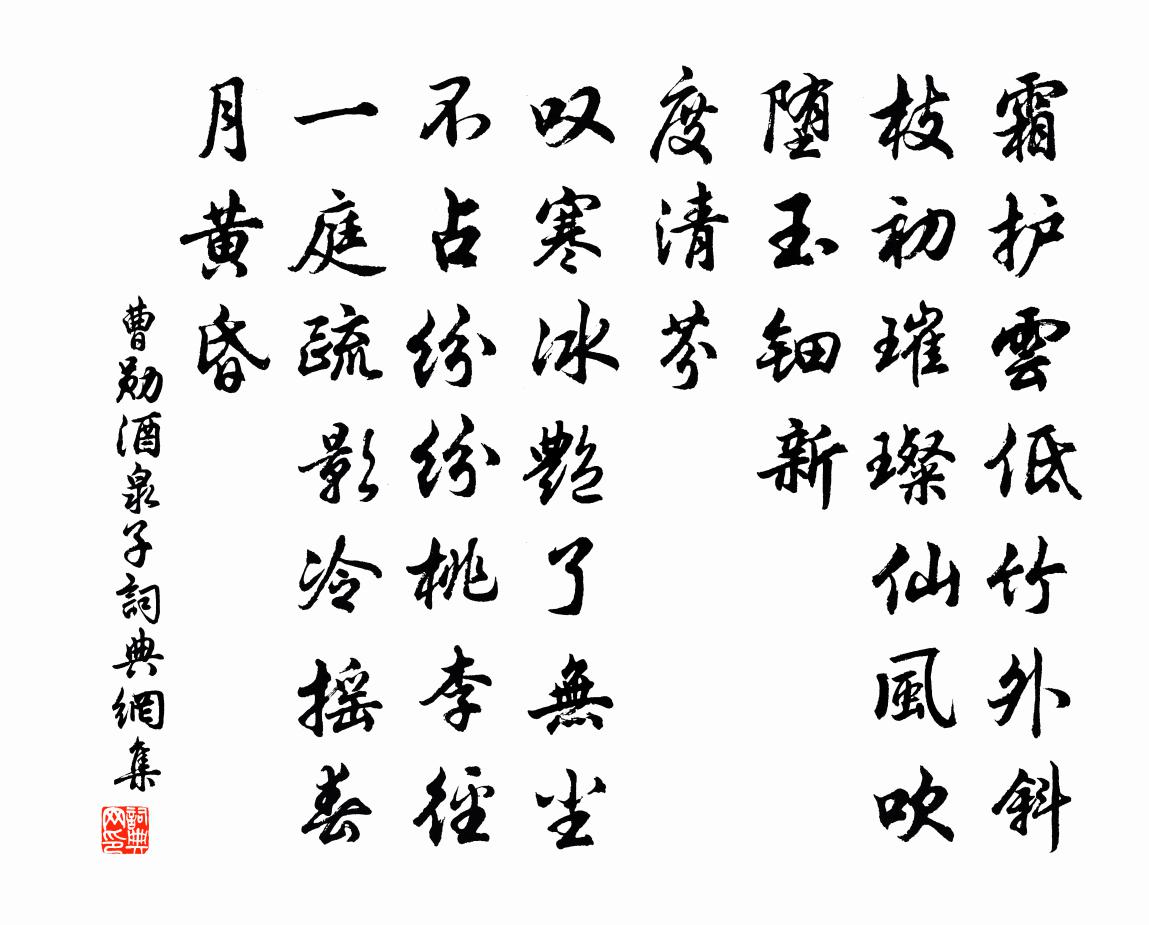 霜护雲低竹外斜
枝初璀璨仙風吹
堕玉钿新
度清芬
叹寒冰艷了無尘
不占纷纷桃李径
一庭疏影冷摇春
月黄昏
曹勋酒泉子詞典網集
詞典网印